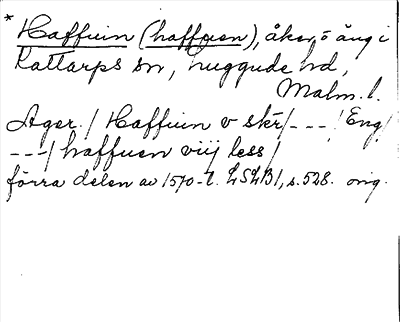 * Haffuin (haffuen), åker, o äng i
Kattarps sn, Luggude hd,
Malm. l.
Ager / Haffuin v skr/---/ Eng/
---/ haffuen viij less /
förra delen av 1570-t. LSLB1, s. 528. orig.